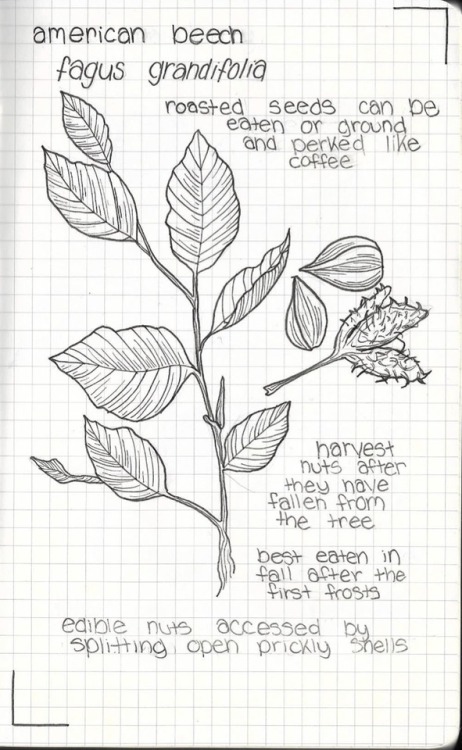 american beech
fagus grandifolia
roasted seeds can be
eaten or ground
and perked like
coffee
harvest
nuts after
they have
fallen from
the tree
best eaten in
fall after the
first frosts
edible nuts accessed by
splitting open prickly shells